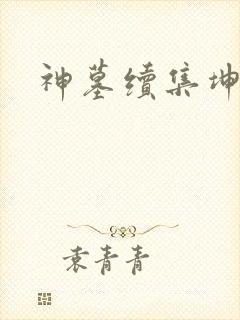 神墓續集坤
袁青青